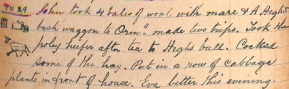 TU 29 John took 4 bales of wool with mare & R. Hegh's
back waggon to Oron - made two trips. Took the
poley heifer after tea to Heghs bull. Cooked
some of the hay. Put in a row of cabbage
plants in front of house. Eva better this evening.